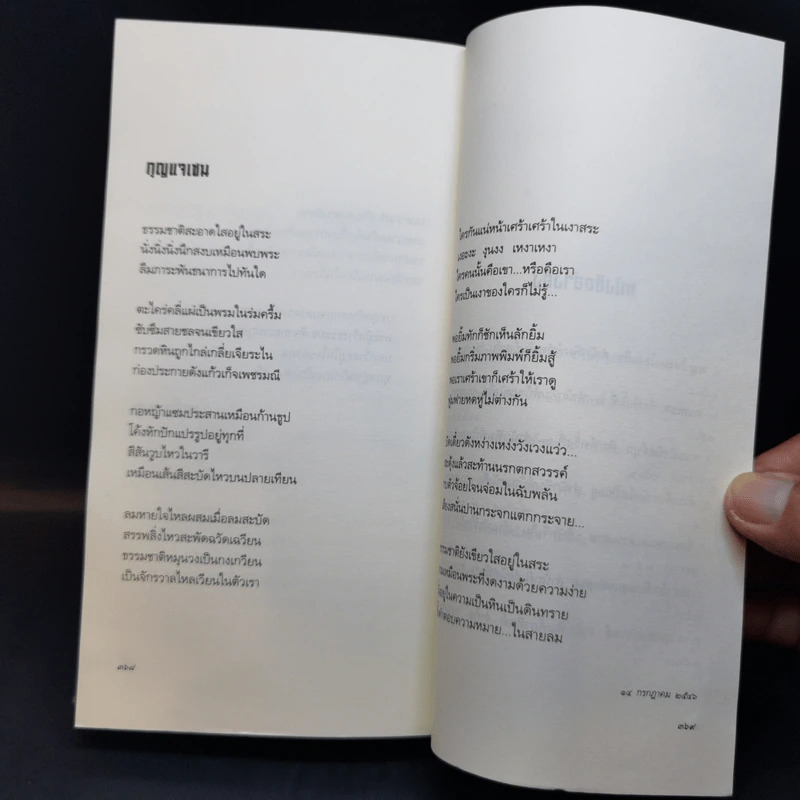 กุญแจเซน
ธรรมชาติสะอาดใสอยู่ในสระ
นั่งนิ่งนิ่งนึกสงบเหมือนพบพระ
ลืมภาระพันธนาการไปทันใด
ตะไคร่คลี่แผ่เป็นพรมในร่มครึ้ม
ซับซึมสายชลจนเขียวใส
กรวดหินถูกไกล่เกลี่ยเจียระไน
ก่องประกายดังแก้วเก็จเพชรมณี
กอหญ้าแซมประสานเหมือนก้านธูป
โค้งหักปักแปรรูปอยู่ทุกที่
สีสันวูบไหวในวารี
เหมือนเส้นสีสะบัดไหวบนปลายเทียน
ลมหายใจไหลผสมเมื่อลมสะบัด
สรรพสิ่งไหวสะพัดฉวัดเฉวียน
ธรรมชาติหมุนวงเป็นกงเกวียน
เป็นจักรวาลไหลเวียนในตัวเรา
๓๖๘
ใครกันแน่หน้าเศร้าเศร้าในเงาสระ
งุนงง เหงาเหงา
ใครคนนั้นคือเขา...หรือคือเรา
ใครเป็นเงาของใครก็ไม่รู้...
พอยิ้มทักก็ชักเห็นลักยิ้ม
พอยิ้มกริ่มภาพพิมพ์ก็ยิ้มสู้
พอเราเศร้าเขาก็เศร้าให้เราดู
หดหู่ไม่ต่างกัน
ดังหง่างเหง่งวังเวงแว่ว...
สะดุ้งแล้วสะท้านนรกตกสวรรค์
จ้อยโจนจ่อมในฉับพลัน
สนั่นปานกระจกแตกกระจาย...
ธรรมชาติยังเขียวใสอยู่ในสระ
เหมือนพระที่งดงามด้วยความง่าย
อยู่ในความเป็นหินเป็นดินทราย
ตอบความหมาย...ในสายลม
๑๔ กรกฎาคม ๒๕๔๖
๓๖๙